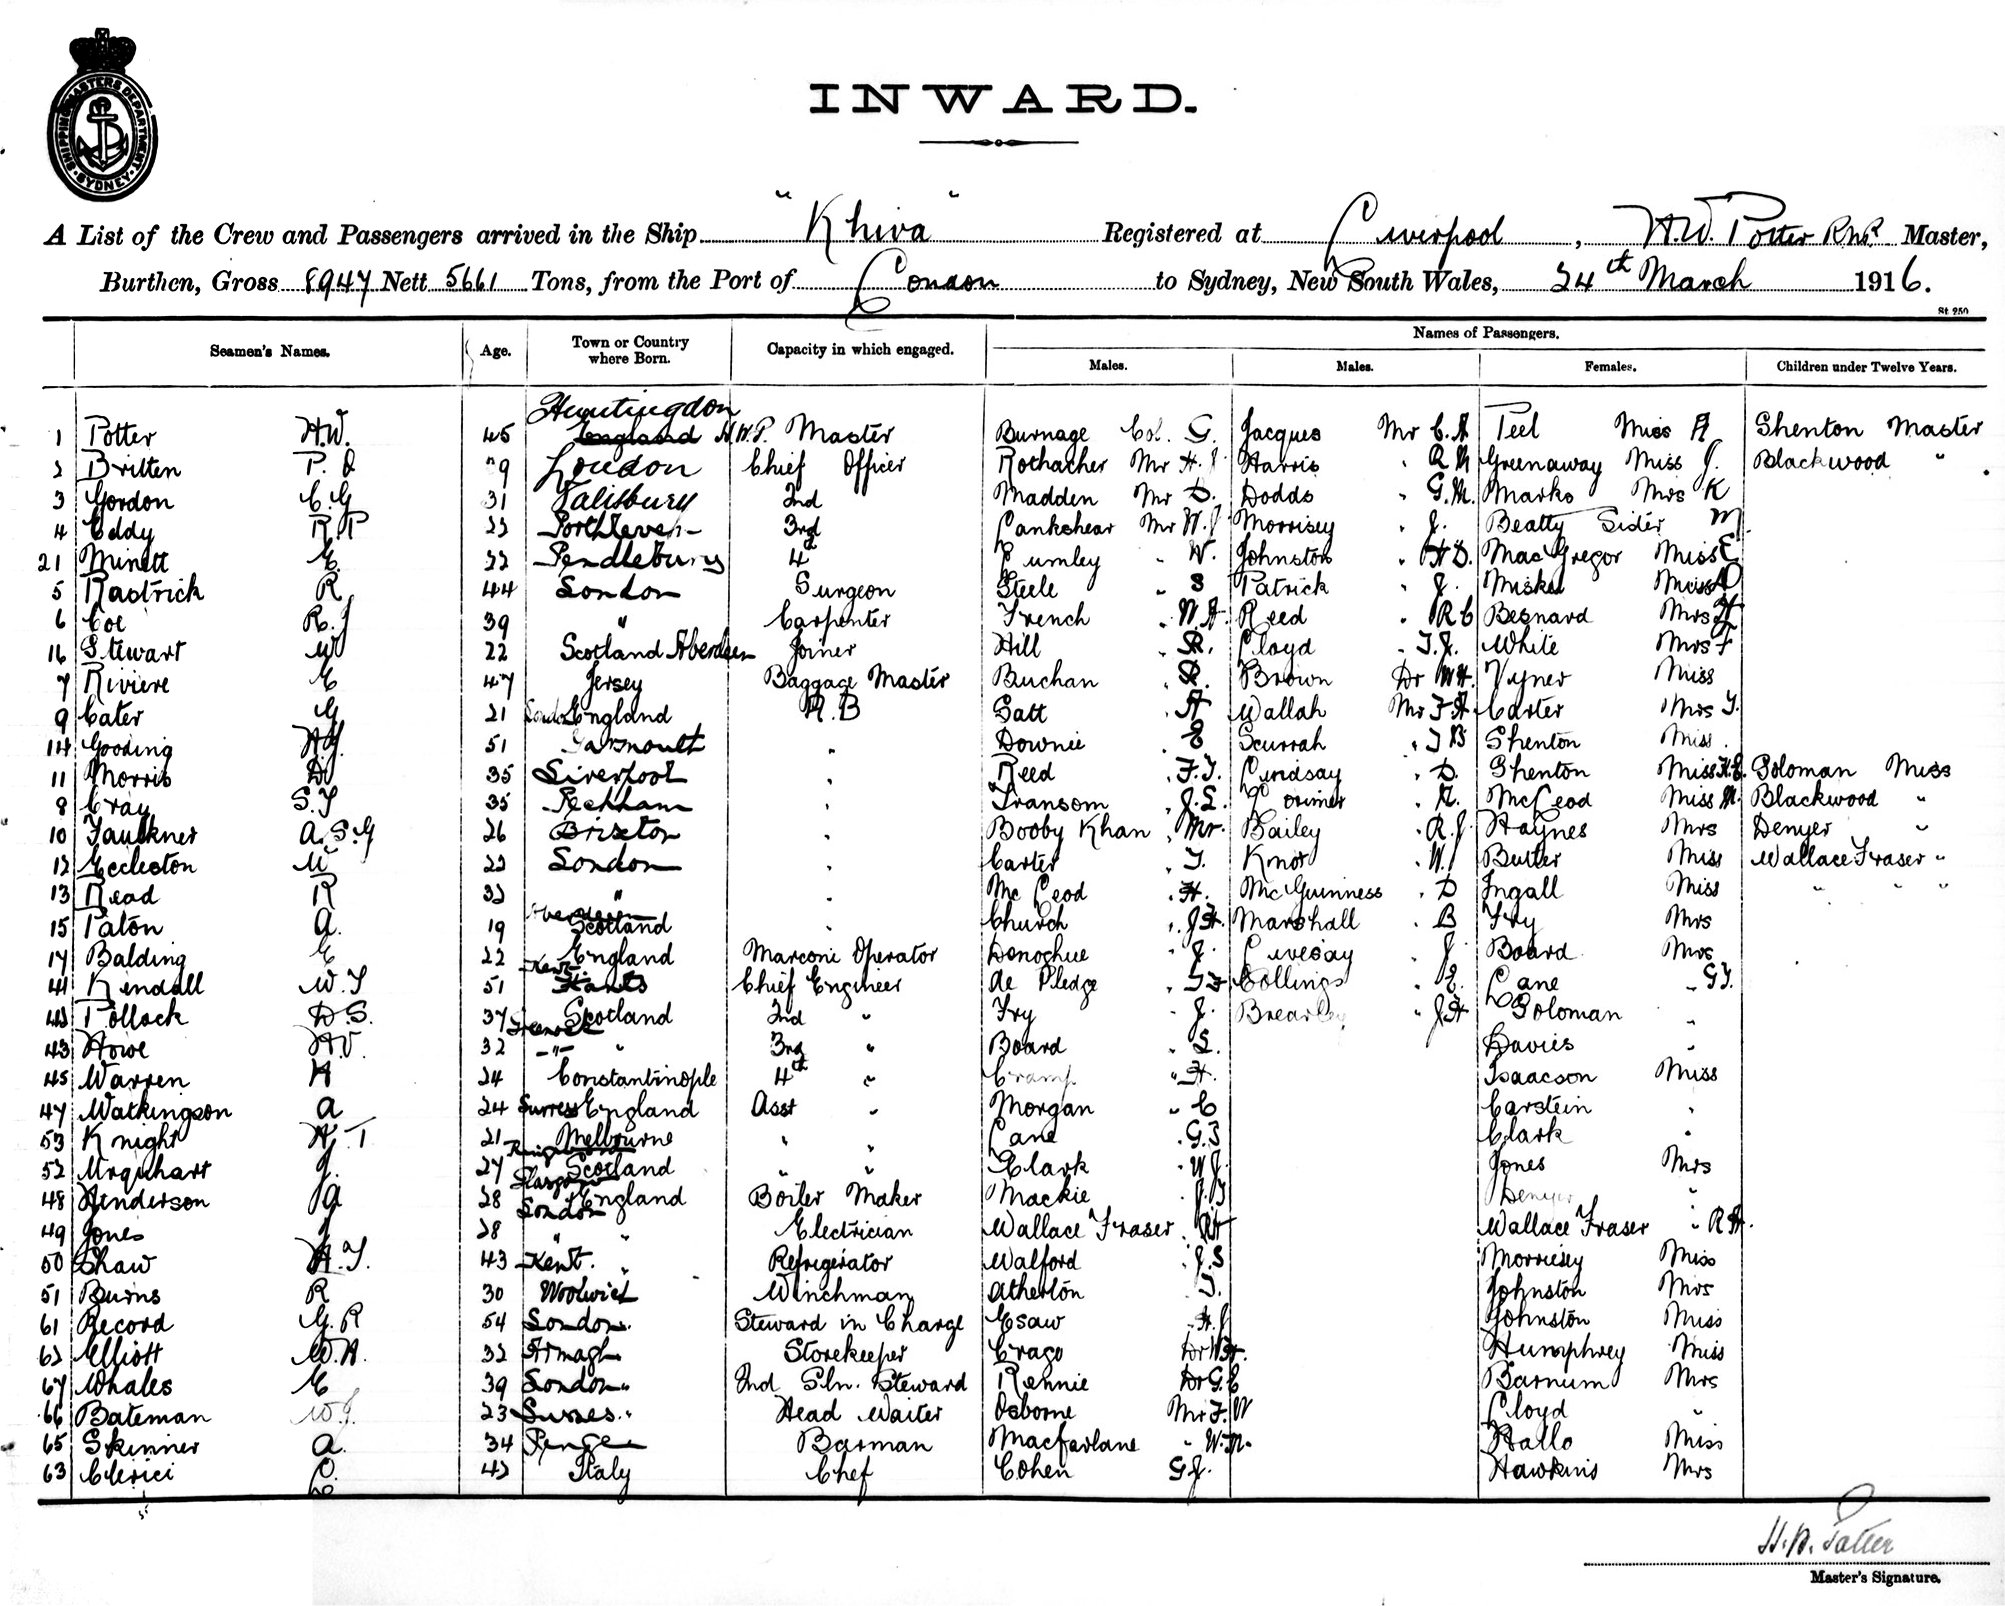 SHIPPING MASTERS DEPARTMENT · SYDNEY ·
INWARD.
A List of the Crew and Passengers arrived in the Ship "Khiva" Registered at Liverpool, H.W. Potter RNR Master,
Burthen, Gross 8947 Nett 5661 Tons, from the Port of London to Sydney, New South Wales, 24th March 1916.
St 250
Seamen's Names. Age. Town or Country where Born. Capacity in which engaged. Names of Passengers.
Males. Males. Females. Children under Twelve Years.
Huntingdon
1 Potter H.W. 45 England H.W.P. Master Burnage Col. G. Jacques Mr C.A Teel Miss A Shenton Master
2 Britten P. 9 London Chief Officer Rothacher Mr H.J Harris " A Greenaway Miss J. Blackwood "
3 Gordon C.G 31 Salisbury 2nd Madden Mr D. Dodds " G.M. Marks Mrs K
4 Eddy R.P 23 Porthleven 3rd Lankshear Mr W.J Morrisey " J. Beatty Sider M.
21 Minett E. 22 Pendlebury 4th Lumley " W. Johnston " H D. MacGregor Miss E
5 Rastrick R 44 London Surgeon Steele " S Patrick " J. Miskel Miss
6 Coe R.J 39 " Carpenter French " W.A. Reed " R C Besnard Mrs H
16 Stewart W 22 Scotland Aberdeen Joiner Hill " R. Lloyd " T.J. White Mrs F
7 Riviere E 47 Jersey Baggage Master Buchan " R. Brown Dr W H. Vyner Miss
9 Cater G 21 London England A.B Satt " A Wallah Mr F A. Carter Mrs T.
14 Gooding H.G. 51 Yarmouth " Downie " E Scurrah " T B Shenton Miss.
11 Morris D 35 Liverpool " Reed " F.T. Lindsay " D. Shenton Miss H.E. Soloman Miss
8 Cray S.T 35 Peckham " Transom " J.L. Lorimer " R. McLeod Miss M. Blackwood "
10 Faulkner A.S.G 26 Brixton " Booby Khan Mr. Bailey " R.J. Haynes Mrs Denyer "
12 Eccleston W 22 London " Carter " T. Knot " W. Butler Miss Wallace Fraser "
13 Read R 32 " " McLeod " H. McGuinness " D Ingall Miss " " "
15 Paton A. 19 Aberdeen Scotland " Church " J H. Marshall " B Fry Mrs
17 Balding E 22 England Marconi Operator Donoghue " J. Livesay " J Board Mrs
41 Kendall W.T 51 Kent Hants Chief Engineer de Pledge " T F Collings " E. Lane " G T.
42 Pollock D.S. 37 Scotland 2nd " Fry " J. Brearley " J H Soloman "
43 Howe H.V. 32 Greenock " " 3rd " Board " L. Davies "
45 Warren H 24 Constantinople 4th " Cramp " H. Isaacson Miss
47 Watkingson A 24 Surrey England Asst " Morgan " C Carstein "
53 Knight H.T 21 Melbourne " " Lane " G.T Clark "
52 Urquhart J. 27 Scotland " " Clark " W J. Jones Mrs
48 Henderson A 28 Glasgow England Boiler Maker Mackie " J.T Denyer "
49 Jones J 28 London " " Electrician Wallace Fraser " R H Wallace Fraser " R H.
50 Shaw H.T. 43 Kent. " Refrigerator Walford " J.S Morrisey Miss
51 Burns R 30 Woolwich Winchman Atherton " T. Johnston Mrs
61 Record G.R 54 London. Steward in Charge Esaw " H.J Johnston Miss
62 Elliott W.H. 32 Armagh Storekeeper Crago Dr W H. Humphrey Miss
67 Whales E 39 London " 2nd Sln. Steward Rennie Dr G E Barnum Mrs
66 Bateman W.J. 23 Sussex " Head Waiter Osborne Mr F. W Lloyd "
65 Skinner A. 34 Penge Barman Macfarlane " W.M. Hallo Miss
63 Clerici C. 42 Italy Chef Cohen G J. Hawkins Mrs
H.W. Potter
Master's Signature.